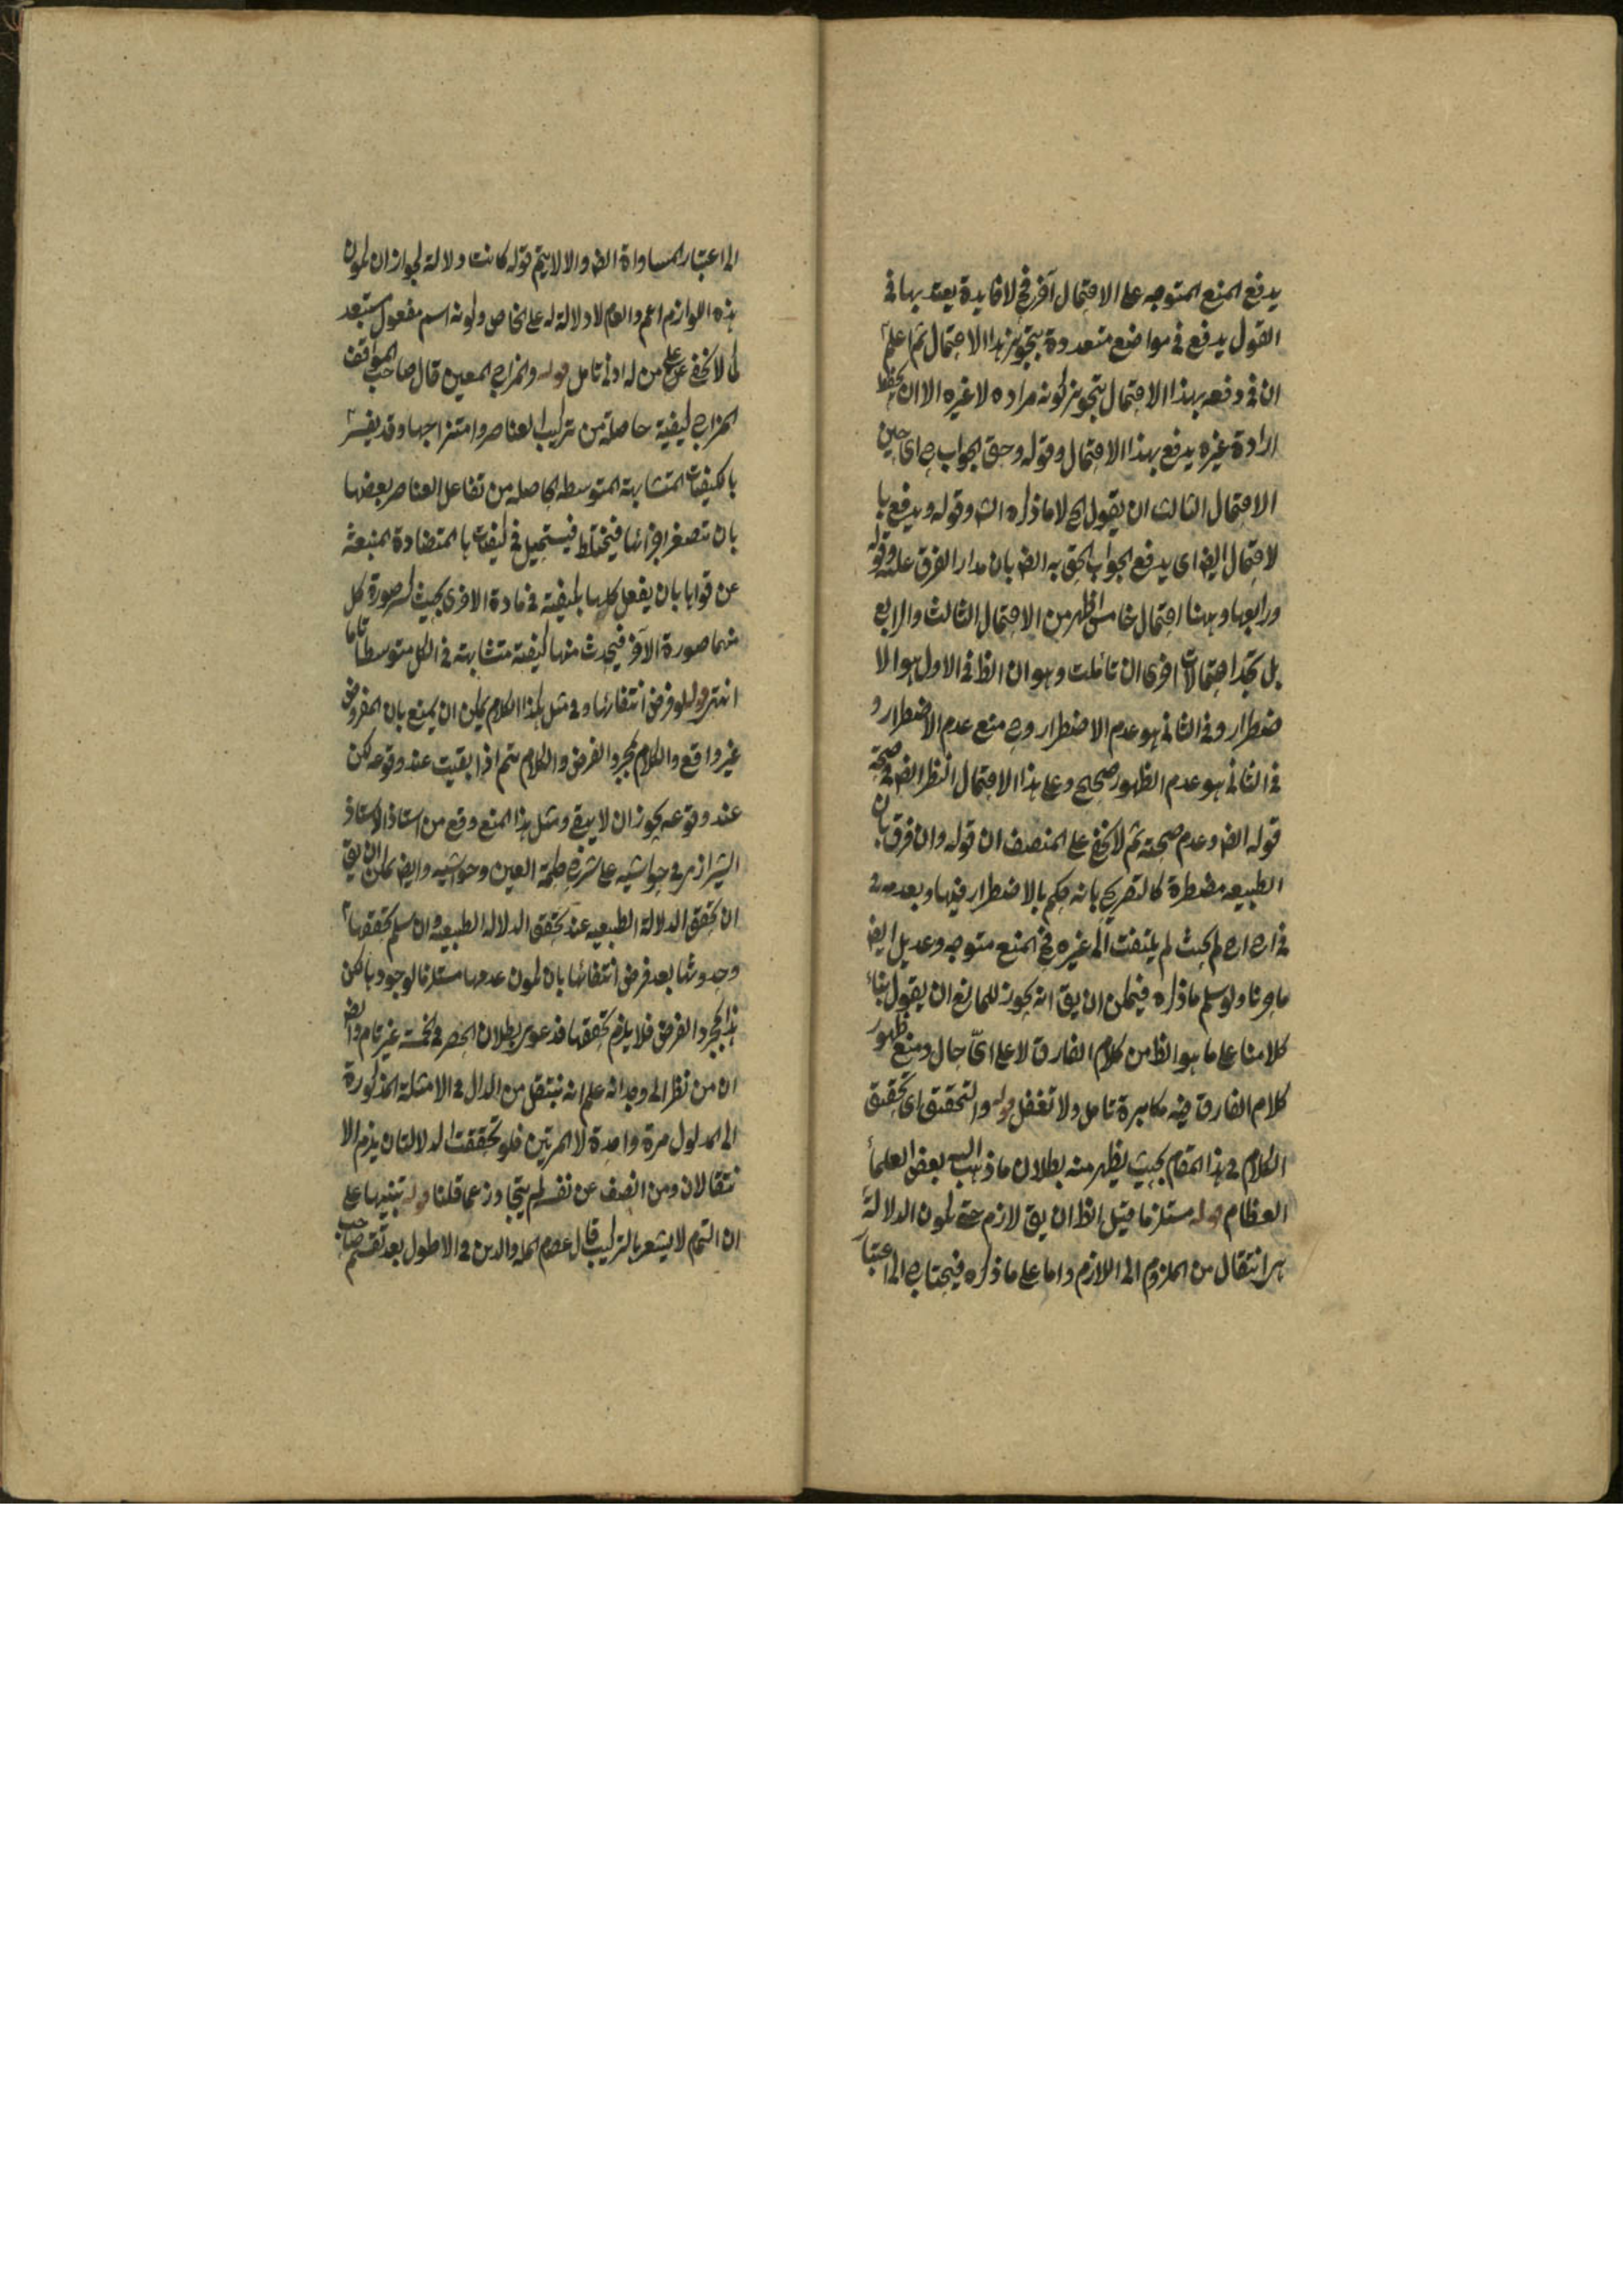 يدفع المنع المتوجه على الاحتمال آخر فح لا فايدة يعتد بها في
القول يدفع في مواضع متعددة بتجويز هذا الاحتمال ثم اعلم
ان في دفعه بهذا الاحتمال بتجويز كونه مراده لا غيره الا ان
ارادة غيره يدفع بهذا الاحتمال وقوله وحق الجواب ح اى حين
الاحتمال الثالث ان يقول الخ لا ما ذكره الش وقوله ويدفع با
لاحتمال ايض اى يدفع الجواب الحق به ايض بان مدار الفرق عليه وقوله
ورابعها وههنا احتمال خامس اظهر من الاحتمال الثالث والرابع
بل تجد احتمالات اخرى ان تأملت وهو ان الظ في الاول هو الا
ضطرار وفي الثاني هو عدم الاضطرار وح منع عدم الاضطرار و
في الثاني هو عدم الظهور صحيح وعلى هذا الاحتمال النظر ايض في صحة
قوله ايض وعدم صحته ثم لا يخفى على المنصف ان قوله وان فرق بان
الطبيعه مضطرة كالتصريح بانه حكم بالاضطرار فيها وبعدمه في
لم يلتفت الى غيره فح المنع متوجه وعديل ايض
ما حرنا ولو سلم ما ذكره فيمكن ان يق انه يجوز للمانع ان يقول بناء
كلامنا على ما هو الظ من كلام الفارق لا على اىّ حال ومنع ظهور
كلام الفارق فيه مكابرة تامل ولا تغفل قوله والتحقيق اى تحقيق
الكلام في هذا المقام بحيث يظهر منه بطلان ما ذهب اليه بعض العلماء
العظام قوله مستلزما قيل الظ ان يق لازم حتى يكون الدلالة
هى انتقال من الملزوم الى اللازم واما على ما ذكره فيحتاج الى اعتبار
الى اعتبار المساواة ايض والا لا يتم قوله كانت دلالة لجواز ان يكون
هذه اللوازم اعم والعام لا دلالة له على الخاص وكونه اسم مفعول مستبعد
كما لا يخفى على من له ادنى تامل قوله والمزاج المعين قال صاحب المواقف
المزاج كيفية حاصلة من تركيب العناصر وامتزاجها وقد يفسر
بالكيفيات المتشابهة المتوسطه الحاصله من تفاعل العناصر بعضها
بان تصغر اجزائها فيختلط فيستحيل في كيفياتها المتضادة المنبعثة
عن قواها بان يفعل كلها بكيفية في مادة الاخرى بحيث كسر صورة كل
منهما صورة الآخر فيحدث منها كيفية متشابهة في الكل متوسطا تاما
انتهى قوله لو فرض انتفائها وفي مثل هذا الكلام يمكن ان يمنع بان المفروض
غير واقع والكلام مجرد الفرض والكلام يتم اذا بقيت عند وقوعه لكن
عند وقوعه يجوز ان لا يبقى ومثل هذا المنع وقع من استاذ الاستاذ
الشيرازى في حواشيه على شرح حكمة العين وحواشيه وايض يمكن ان يق
ان تحقق الدلالة الطبيعيه عند تحقق الدلاله الطبيعية وان سلم تحققها
وحدوثها بعد فرض انتفائها بان يكون عدمها مستلزما لوجودها لكن
هذا بمجرد الفرض فلا يلزم تحققها فدعوى بطلان الحصر في الخمسة غير تام وايض
ان من نظر الى وجدانه علم انه ينتقل من الدال في الامثلة المذكورة
الى المدلول مرة واحدة لا المرتين فلو تحققت الدلالتان يلزم الا
نتقالان ومن انصف عن نفسه لم يتجاوز عما قلنا قوله تنبيها على
ان التمام لا يشعر بالتركيب قال عصام الملة والدين في الاطول بعد صاحب